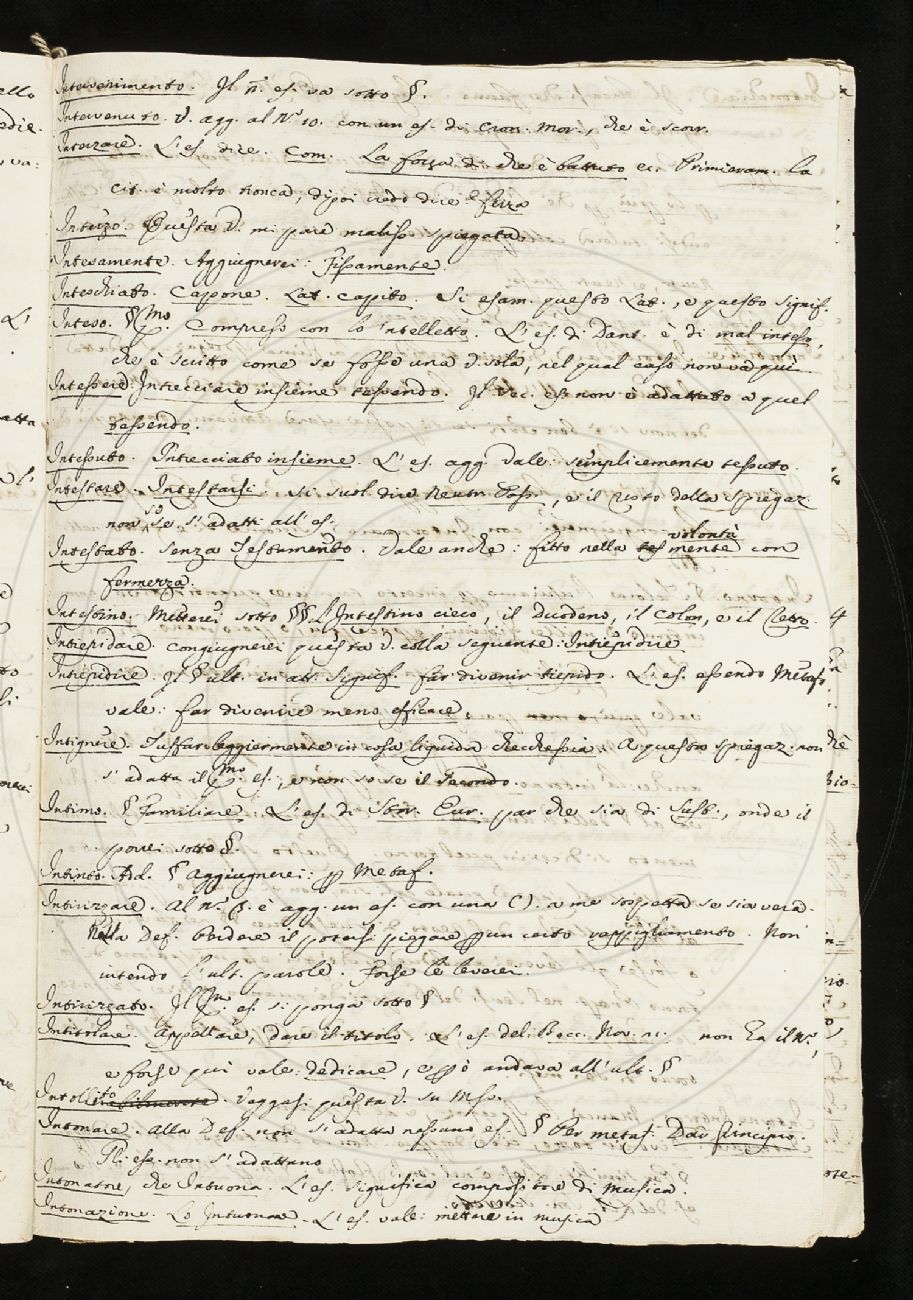 Intervenimento. Il n. es. va sotto §.
Intervenuto. V. agg. al N.º 10. con un es. di Cron. Mor., che è scorr.
Interzare. L'es. dice. Com. La forza di che è battuto ec. Primieram. la
cit. è molto tronca, dipoi credo dice: sferza
Interzo. Questa V. mi pare malisso. spiegata.
Intesamente. Aggiugnerei: Fissamente.
Inteschiato. Capone. Lat. capito. Si esam. questo Lat., e questo signif.
Inteso. § Pmo. Compreso con lo intelletto. L'es. di Dant. è di mal inteso,
che è scritto come se fosse una V. sola, nel qual caso non va quì
Intessere: Intrecciare insieme tessendo. Il sec. es. non è adattato a quel
tessendo.
Intessuto. Intrecciato insieme. L'es. agg. vale: semplicemente tessuto.
Intestare. Intestarsi. Si suol dire Neutr. Pass., e il resto della spiegaz.
non so se s'adatti all'es.
Intestato. Senza Testamento. Vale anche: fitto nella mente volontà con
fermezza.
Intestino. Metterei sotto §§ l'Intestino cieco, il Duodeno, il Colon, e il Retto.
Intiepidare. congiugnerei questa V. colla seguente: Intiepidire
Intiepidire. Il § ult. in att. signif. far divenir tiepido. L'es. essendo Metaf.
vale: far divenire meno efficace.
Intignere. Tuffar leggiermente in cosa liquida checchessia. A questa spiegaz. non
s'adatta il Pmo. es., e non so se il secondo.
Intimo. § Familiare. L'es. di Stor. Eur. par che sia di Sust., onde il
porrei sotto §.
Intinto. Ad. § Aggiugnerei: p Metaf.
Intirizzare. Al N.º §. è agg. un es. con una (). a me sospetta se sia vera.
Nella Def. Perdere il potersi piegare p un certo rappigliamento. Non
intendo l'ult. parole. Forse le leverei.
Intirizzato. Il Pmo es. si ponga sotto §
Intitolare. Appellare, dare il titolo. L'es. del Bocc. Nov. 21. non ha il N.º,
e forse qui vale: dedicare, e pò andava all'ult. §
Veggasi questa V. su Mss.
Intonare. Alla Def. non s'adatta nessuno es. § Per metaf. Dar principio.
Gli es. non s'adattano
Intonatore, che Intuona. L'es. significa compositore di Musica.
Intonazione. Lo Intuonare. L'es. vale: mettere in musica